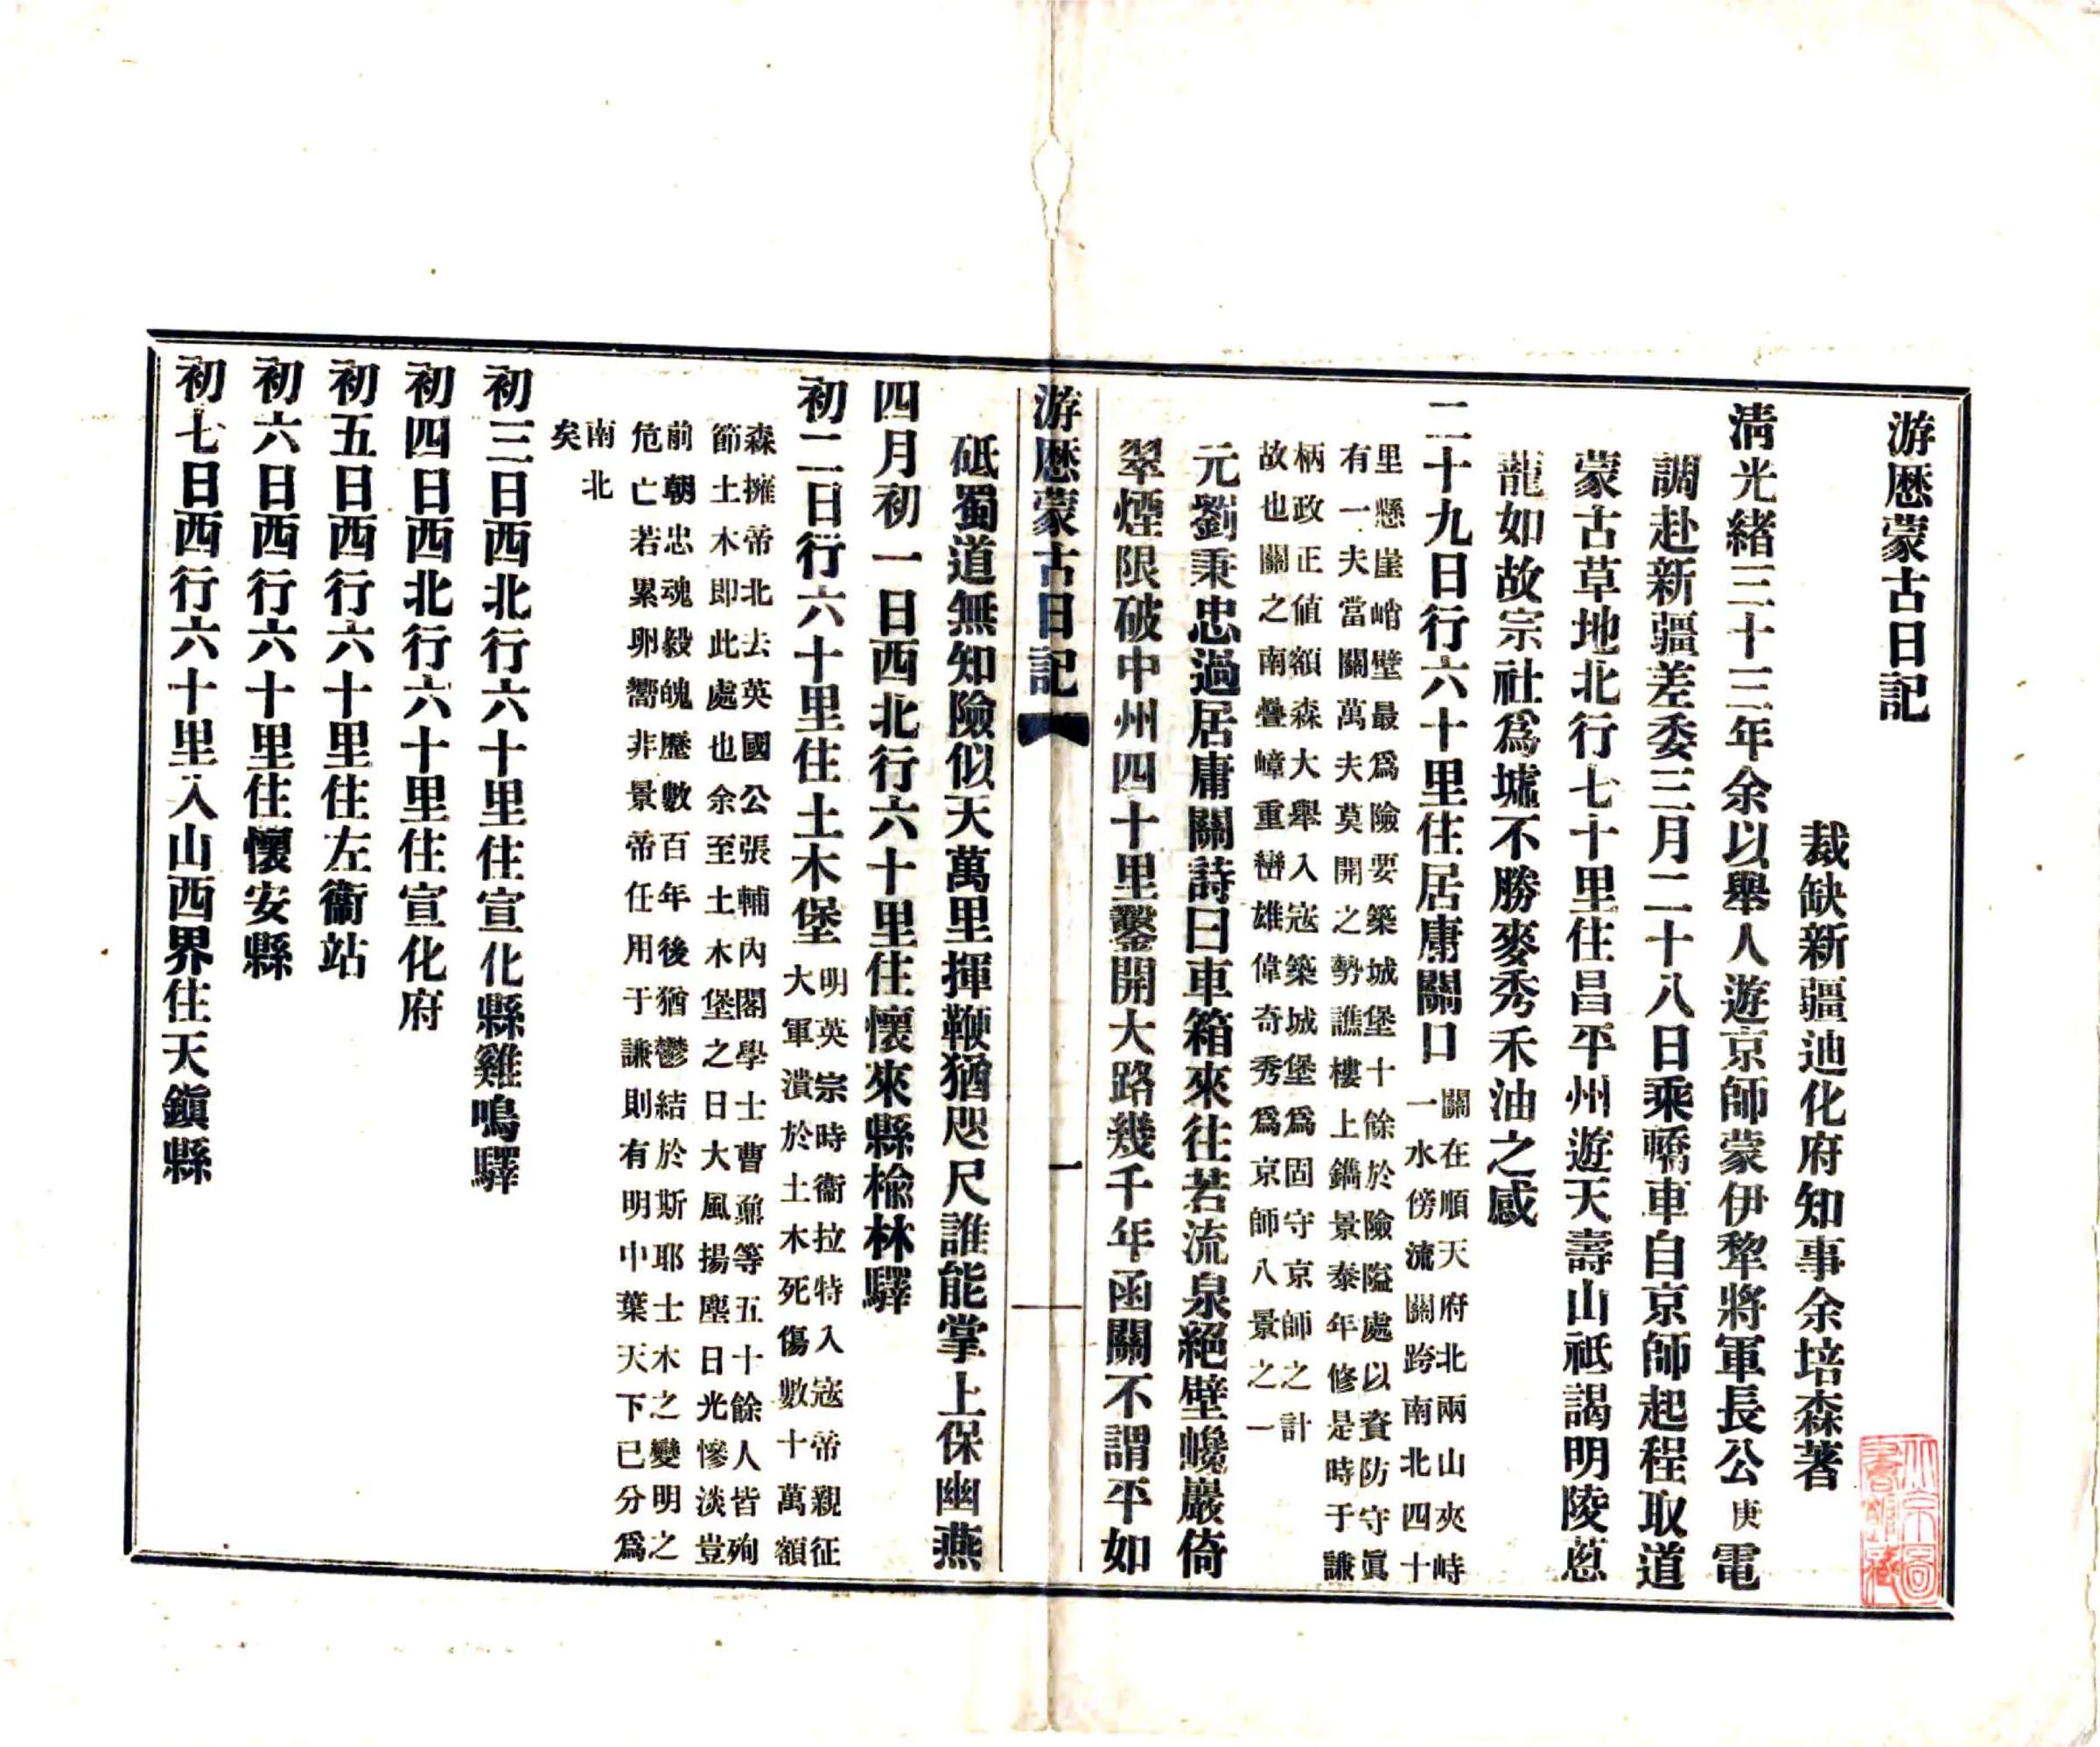 游歷蒙古日記
裁缺新疆迪化府知事余培森著
清光緒三十三年余以舉人遊京師蒙伊犂將軍長公庚電
調赴新疆差委三月二十八日乘轎車自京師起程取道
蒙古草地北行七十里住昌平州遊天壽山祗謁明陵蔥
蘢如故宗社爲墟不勝麥秀禾油之感
二十九日行六十里住居庸關口
關在順天府北兩山夾峙
一水傍流關跨南北四十
里懸崖峭壁最爲險要築城堡十餘於險隘處以資防守眞
有一夫當關萬夫莫開之勢譙樓上鐫景泰年修是時于謙
柄政正値額森大舉入寇築城堡爲固守京師之計
故也關之南疊嶂重巒雄偉奇秀爲京師八景之一
元劉秉忠過居庸關詩曰車箱來往若流泉絕壁巉巖倚
翠煙限破中州四十里鑿開大路幾千年函關不謂平如
游歷蒙古日記
一
砥蜀道無知險似天萬里揮鞭猶咫尺誰能掌上保幽燕
四月初一日西北行六十里住懷來縣榆林驛
初二日行六十里住土木堡
明英宗時衞拉特入寇帝親征
大軍潰於土木死傷數十萬額
森擁帝北去英國公張輔內閣學士曹鼐等五十餘人皆殉
節土木即此處也余至土木堡之日大風揚塵日光慘淡豈
前朝忠魂毅魄歷數百年後猶鬱結於斯耶土木之變明之
危亡若累卵嚮非景帝任用于謙則有明中葉天下已分爲
南北
矣
初三日西北行六十里住宣化縣雞鳴驛
初四日西北行六十里住宣化府
初五日西行六十里住左衞站
初六日西行六十里住懷安縣
初七日西行六十里入山西界住天鎭縣